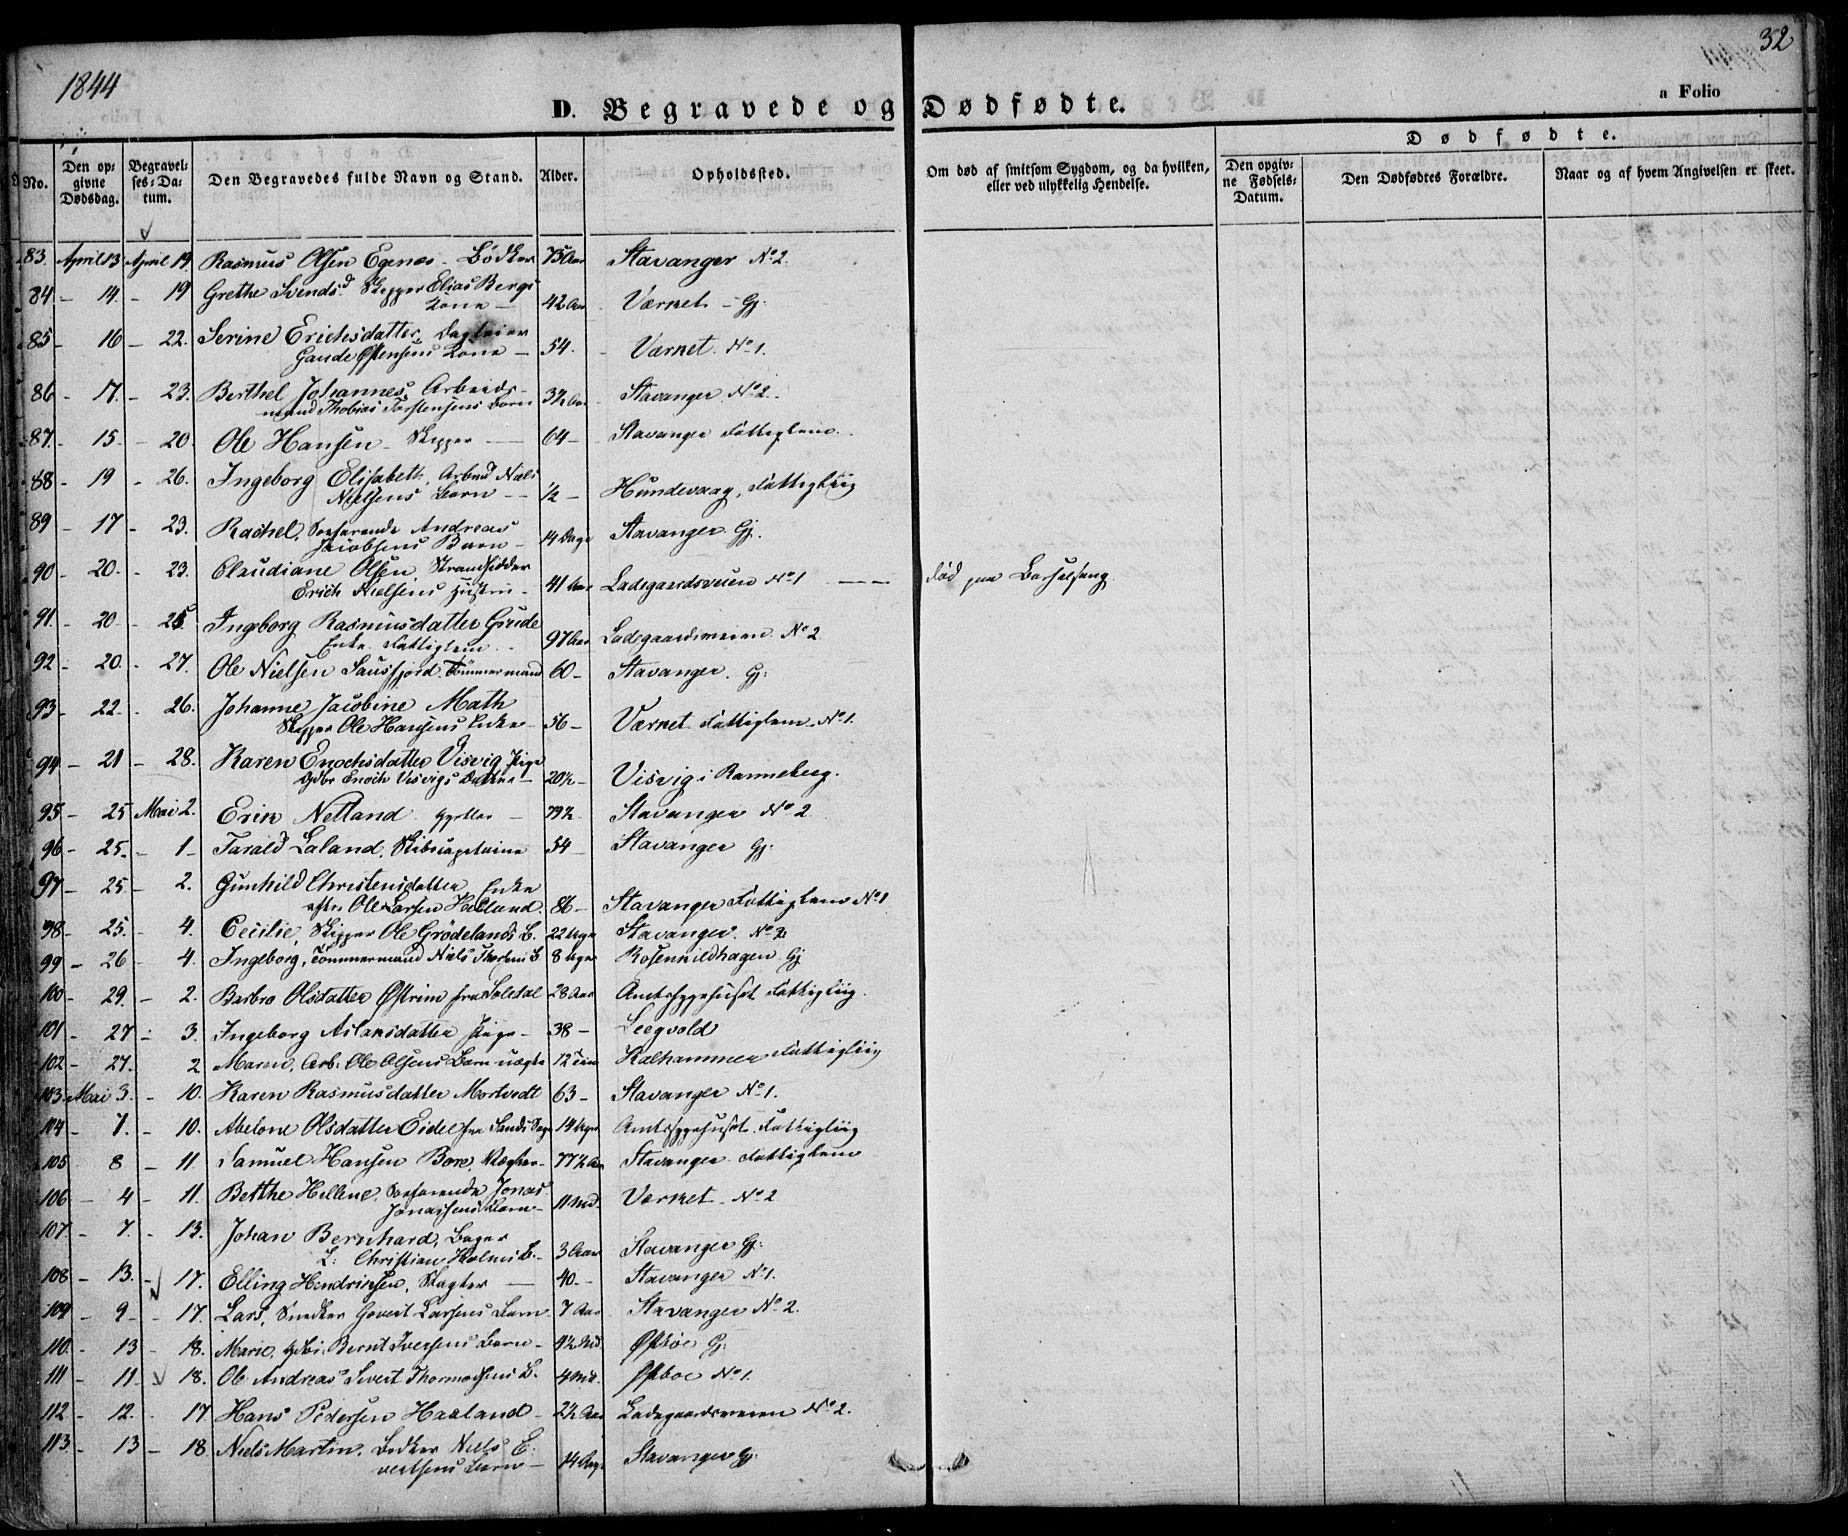 1844
32
D. Begravede og Dødfødte.
a Folio
No.
Den opgivne Dødsdag.
Begravelses-Datum.
Den Begravedes fulde Navn og Stand.
Alder.
Opholdssted.
Om død af smitsom Sygdom, og da hvilken, eller ved ulykkelig Hendelse.
Dødfødte.
Den opgivne Fødsels-Datum.
Den Dødfødtes Forældre.
Naar og af hvem Angivelsen er skeet.
83. April 13 April 19 Rasmus Olsen Egenæs - Bødker 75 Aar Stavanger No 2.
84 - 14. - 19 Grethe Svendsd. Skipper Elias Bergs
Kone - 42 Aar Værket - Gj:
85 - 16 - 22. Serine Erichsdatter, Dagleier
Gaude Østensens Kone - 54. Værket No 1.
86 - 17. - 23. Berthel Johannes, Arbeids-
mand Thobias Torstensens Barn 3½ Aar Stavanger No 2.
87. - 15. - 20. Ole Hansen - Skipper - 64 - Stavanger Fattiglem.
88 - 19 - 26. Ingeborg Elisabeth, Arbmd Niels
Nielsens Barn - ½ - Hundevaag, Fattigliig
89 - 17 - 23. Rachel, Søefarende Andreas
Jacobsens Barn - 14 Dage Stavanger Gj.
90 - 20. - 23. Claudiane Olsen, Strandsidder
Erich Nielsens Hustru - 41 Aar Ladegaardsveien No 1 - Død paa Barselseng.
91. - 20 - 25 Ingeborg Rasmusdatter Gjude
Enke Fattiglem. 97 Aar Ladegaardsveien No 2
92 - 20. - 27. Ole Nielsen Sausfjord. Tømmermand 60 - Stavanger. Gj:
93 - 22. - 26. Johanne Jacobine Math
Skipper Ole Hansens Enke - 56 - Værket Fattiglem. No 1.
94 - 21 - 28. Karen Enochsdatter Visvig, Pige
Gdbr Enoch Visvigs Datter - 20½ - Visvig i Ranneberg.
95 - 25 Mai 2. Erik Netland - 79½ Stavanger No 2
96 - 25. - 1 - Tarald Laland, Skibscapitaine 54 Stavanger Gj:
97 - 25 - 2. Gunhild Christensdatter, Enke
efter Ole Larsen Helland. 86 - Stavanger Fattiglem No 1
98 - 25. - 4. Cecilie, Skipper Ole Grødelands B. 22 Uger Stavanger. No 2
99 - 26 - 4. Ingeborg, Tømmermand Niels B. 8 Uger Rosenkildhagen Gj
100 - 29. - 2. Barbro Olsdatter Østrim fra 28 Aar Amtssygehuset Fattigliig.
101 - 27 - 3. Ingeborg Aslaksdatter Pige - 38 - Leegvold
102 - 27. 2 Maren, Arb: Ole Olsens Barn uægte 12 Kalhammer Fattigliig
103 Mai 3. - 10. Karen Rasmusdatter Mortvedt 63 - Stavanger No 1.
104 - 7. - 10. Abelone Olsdatter Eide fra Sands 14 Amtssygehuset Fattigliig
105 8 - 11. Samuel Hansen Bore, Vægter - 77½ Aar Stavanger Fattiglem
106 - 4 - 11. Berthe Hellene, Søefarende Jonas
Jonassens Barn - 11 Md. Værket No 2
107. - 7. - 13. Johan Bernhard, Bager
L: Christian Holms B. - 3 Aar Stavanger Gj:
108 - 13. - 17. Elling Hendriksen, Slagter - 40. - Stavanger No 1.
109 - 9 - 17. Lars, Snedker Govert Larsens Barn - 7 Aar Stavanger No 2.
110. - 13 - 18. Marie, Gdbr: Bernt Iversens Barn - 4½ Md. Østbøe Gj:
111 - 11 - 18. Ole Andreas Sivert Thormodsens B. 4 Md. Østboe No 1.
112 - 12. 17. Hans Pedersen Haaland - 2½ Aar Ladegaardsveien No 2.
113. - 13 - 18. Niels Martin, Bødker Niels E-
vertsens Barn - 14 Dage Stavanger Gj: